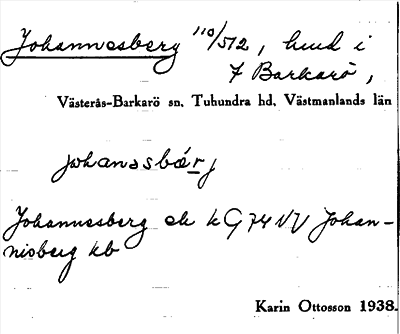 Johannesberg 110/512, hmd i
7 Barkarö,
Västerås-Barkarö sn, Tuhundra hd, Västmanlands län
johanəsbærj
Johannesberg ek k G 74 NV Johan-
nisberg kb
Karin Ottosson 1938.